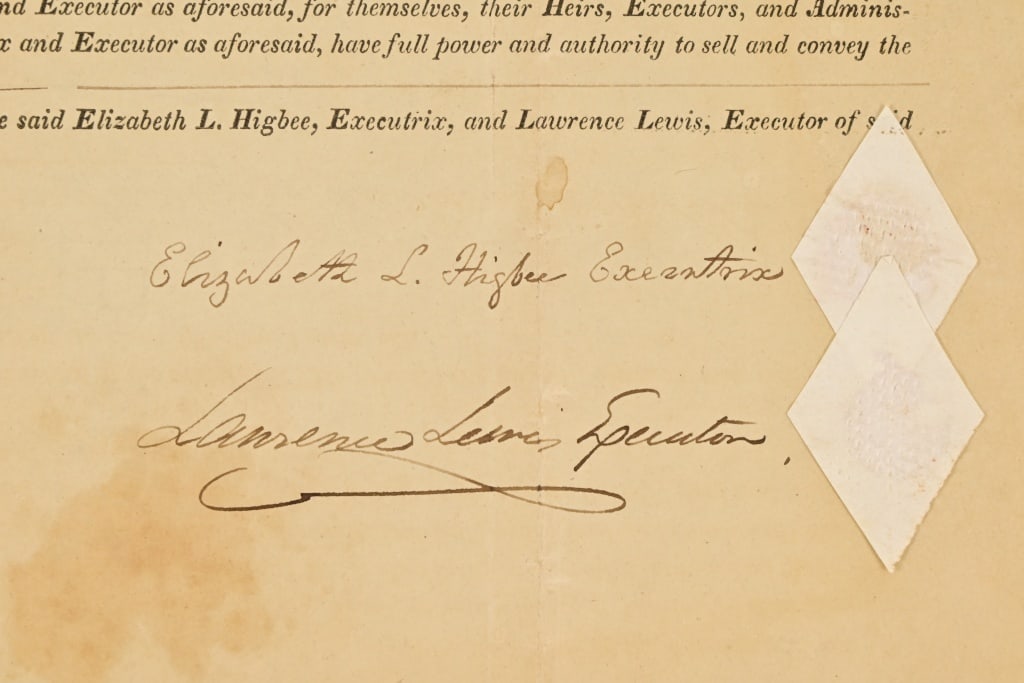 nd Executor as aforesaid, for themselves, their Heirs, Executors, and Adminis-
x and Executor as aforesaid, have full power and authority to sell and convey the
e said Elizabeth L. Higbee, Executrix, and Lawrence Lewis, Executor of said
Elizabeth L. Higbee Executrix
Lawrence Lewis Executor